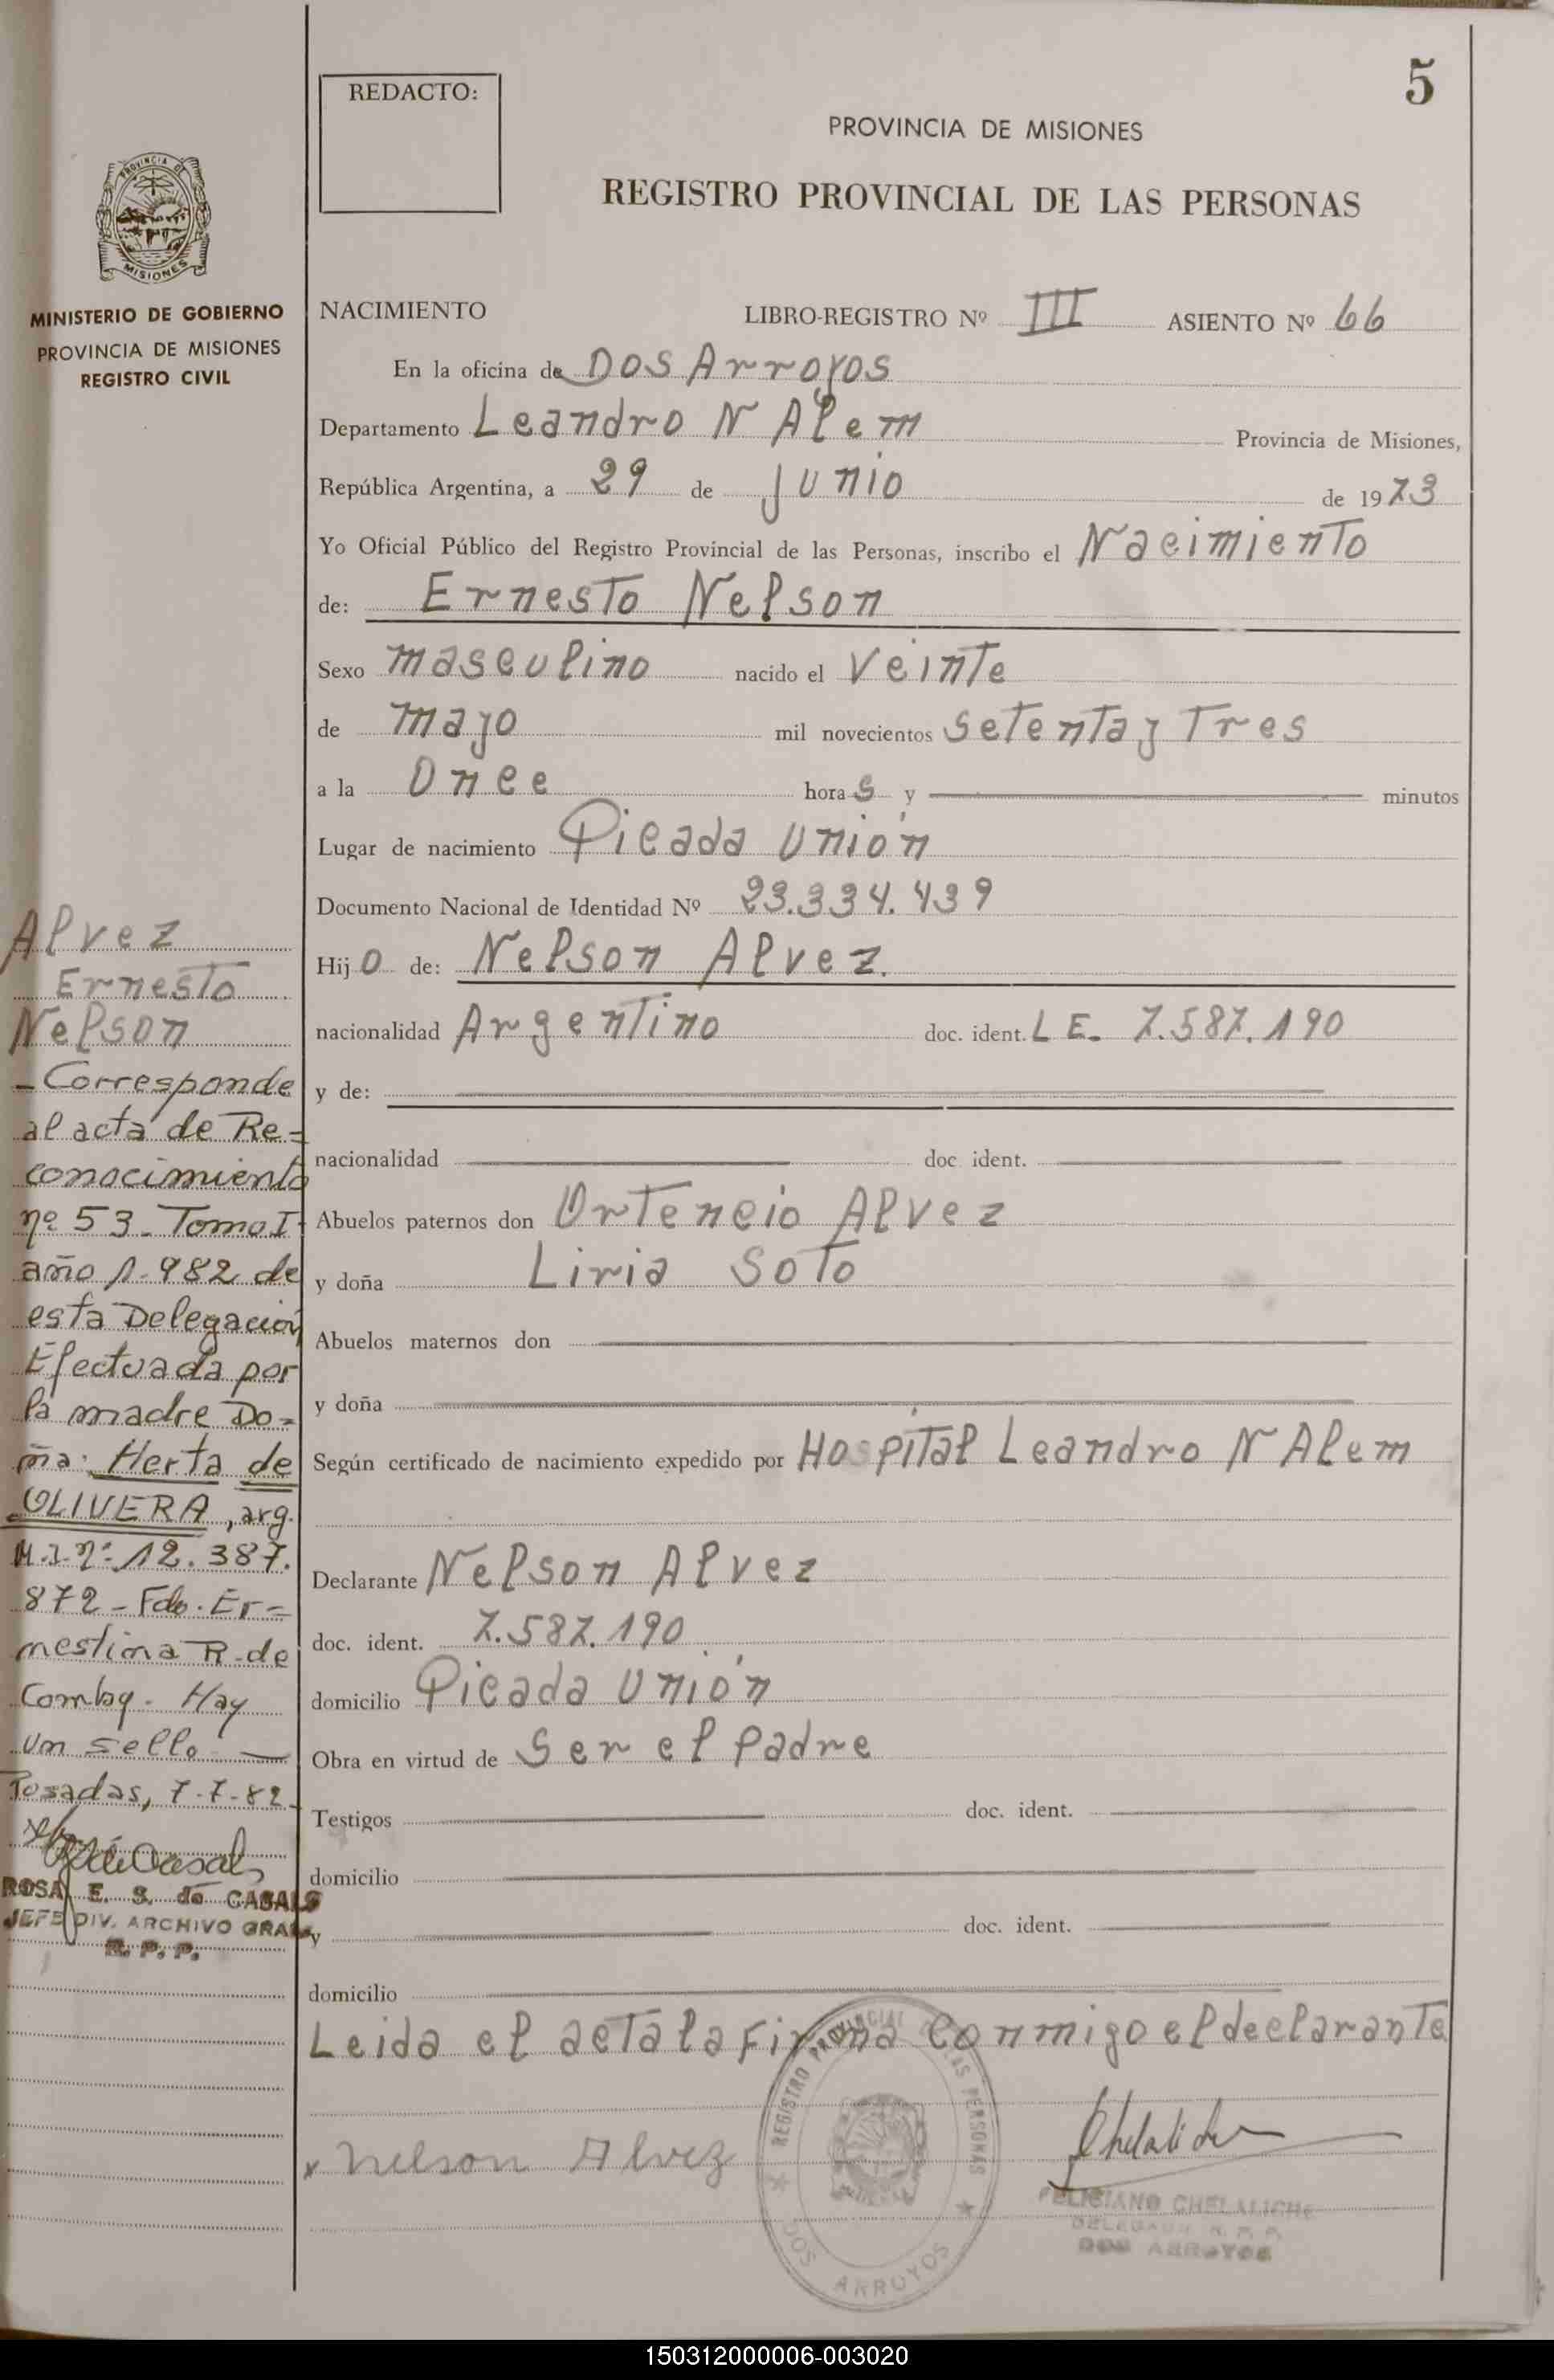 5
REDACTO:
PROVINCIA DE MISIONES
REGISTRO PROVINCIAL DE LAS PERSONAS
PROVINCIA DE
MISIONES
MINISTERIO DE GOBIERNO
PROVINCIA DE MISIONES
REGISTRO CIVIL
NACIMIENTO LIBRO-REGISTRO Nº III ASIENTO Nº 66
En la oficina de Dos Arroyos
Departamento Leandro N Alem Provincia de Misiones,
República Argentina, a 29 de Junio de 1973
Yo Oficial Público del Registro Provincial de las Personas, inscribo el Nacimiento
de: Ernesto Nelson
Sexo masculino nacido el Veinte
de mayo mil novecientos setenta y Tres
a la Once horas y minutos
Lugar de nacimiento Picada Unión
Documento Nacional de Identidad Nº 23.334.439
Hijo de: Nelson Alvez.
nacionalidad Argentino doc. ident. L E. 7.587.190
y de:
nacionalidad doc. ident.
Abuelos paternos don Ortencio Alvez
y doña Liria Soto
Abuelos maternos don
y doña
Según certificado de nacimiento expedido por Hospital Leandro N Alem
Declarante Nelson Alvez
doc. ident. 7.587.190
domicilio Picada Unión
Obra en virtud de Ser el Padre
Testigos doc. ident.
domicilio
y doc. ident.
domicilio
Leida el acta la firma conmigo el declarante
x Nelson Alvez
REGISTRO PROVINCIAL DE LAS PERSONAS
DOS ARROYOS
FELICIANO CHELALICHE
DELEGADO R. P. P.
DOS ARROYOS
Alvez
Ernesto
Nelson
- Corresponde
al acta de Re=
conocimiento
nº 53 - Tomo I-
año 1.982 de
esta Delegación
Efectuada por
la madre Do=
ña: Herta de
OLIVERA, arg.
M.I. nº 12.387.
872 - Fdo. Er=
nestina R. de
Hay
un sello -
Posadas, 7-7-82-
ROSA E. S. de CASALS
JEFE DIV. ARCHIVO GRAL.
R. P. P.
150312000006-003020